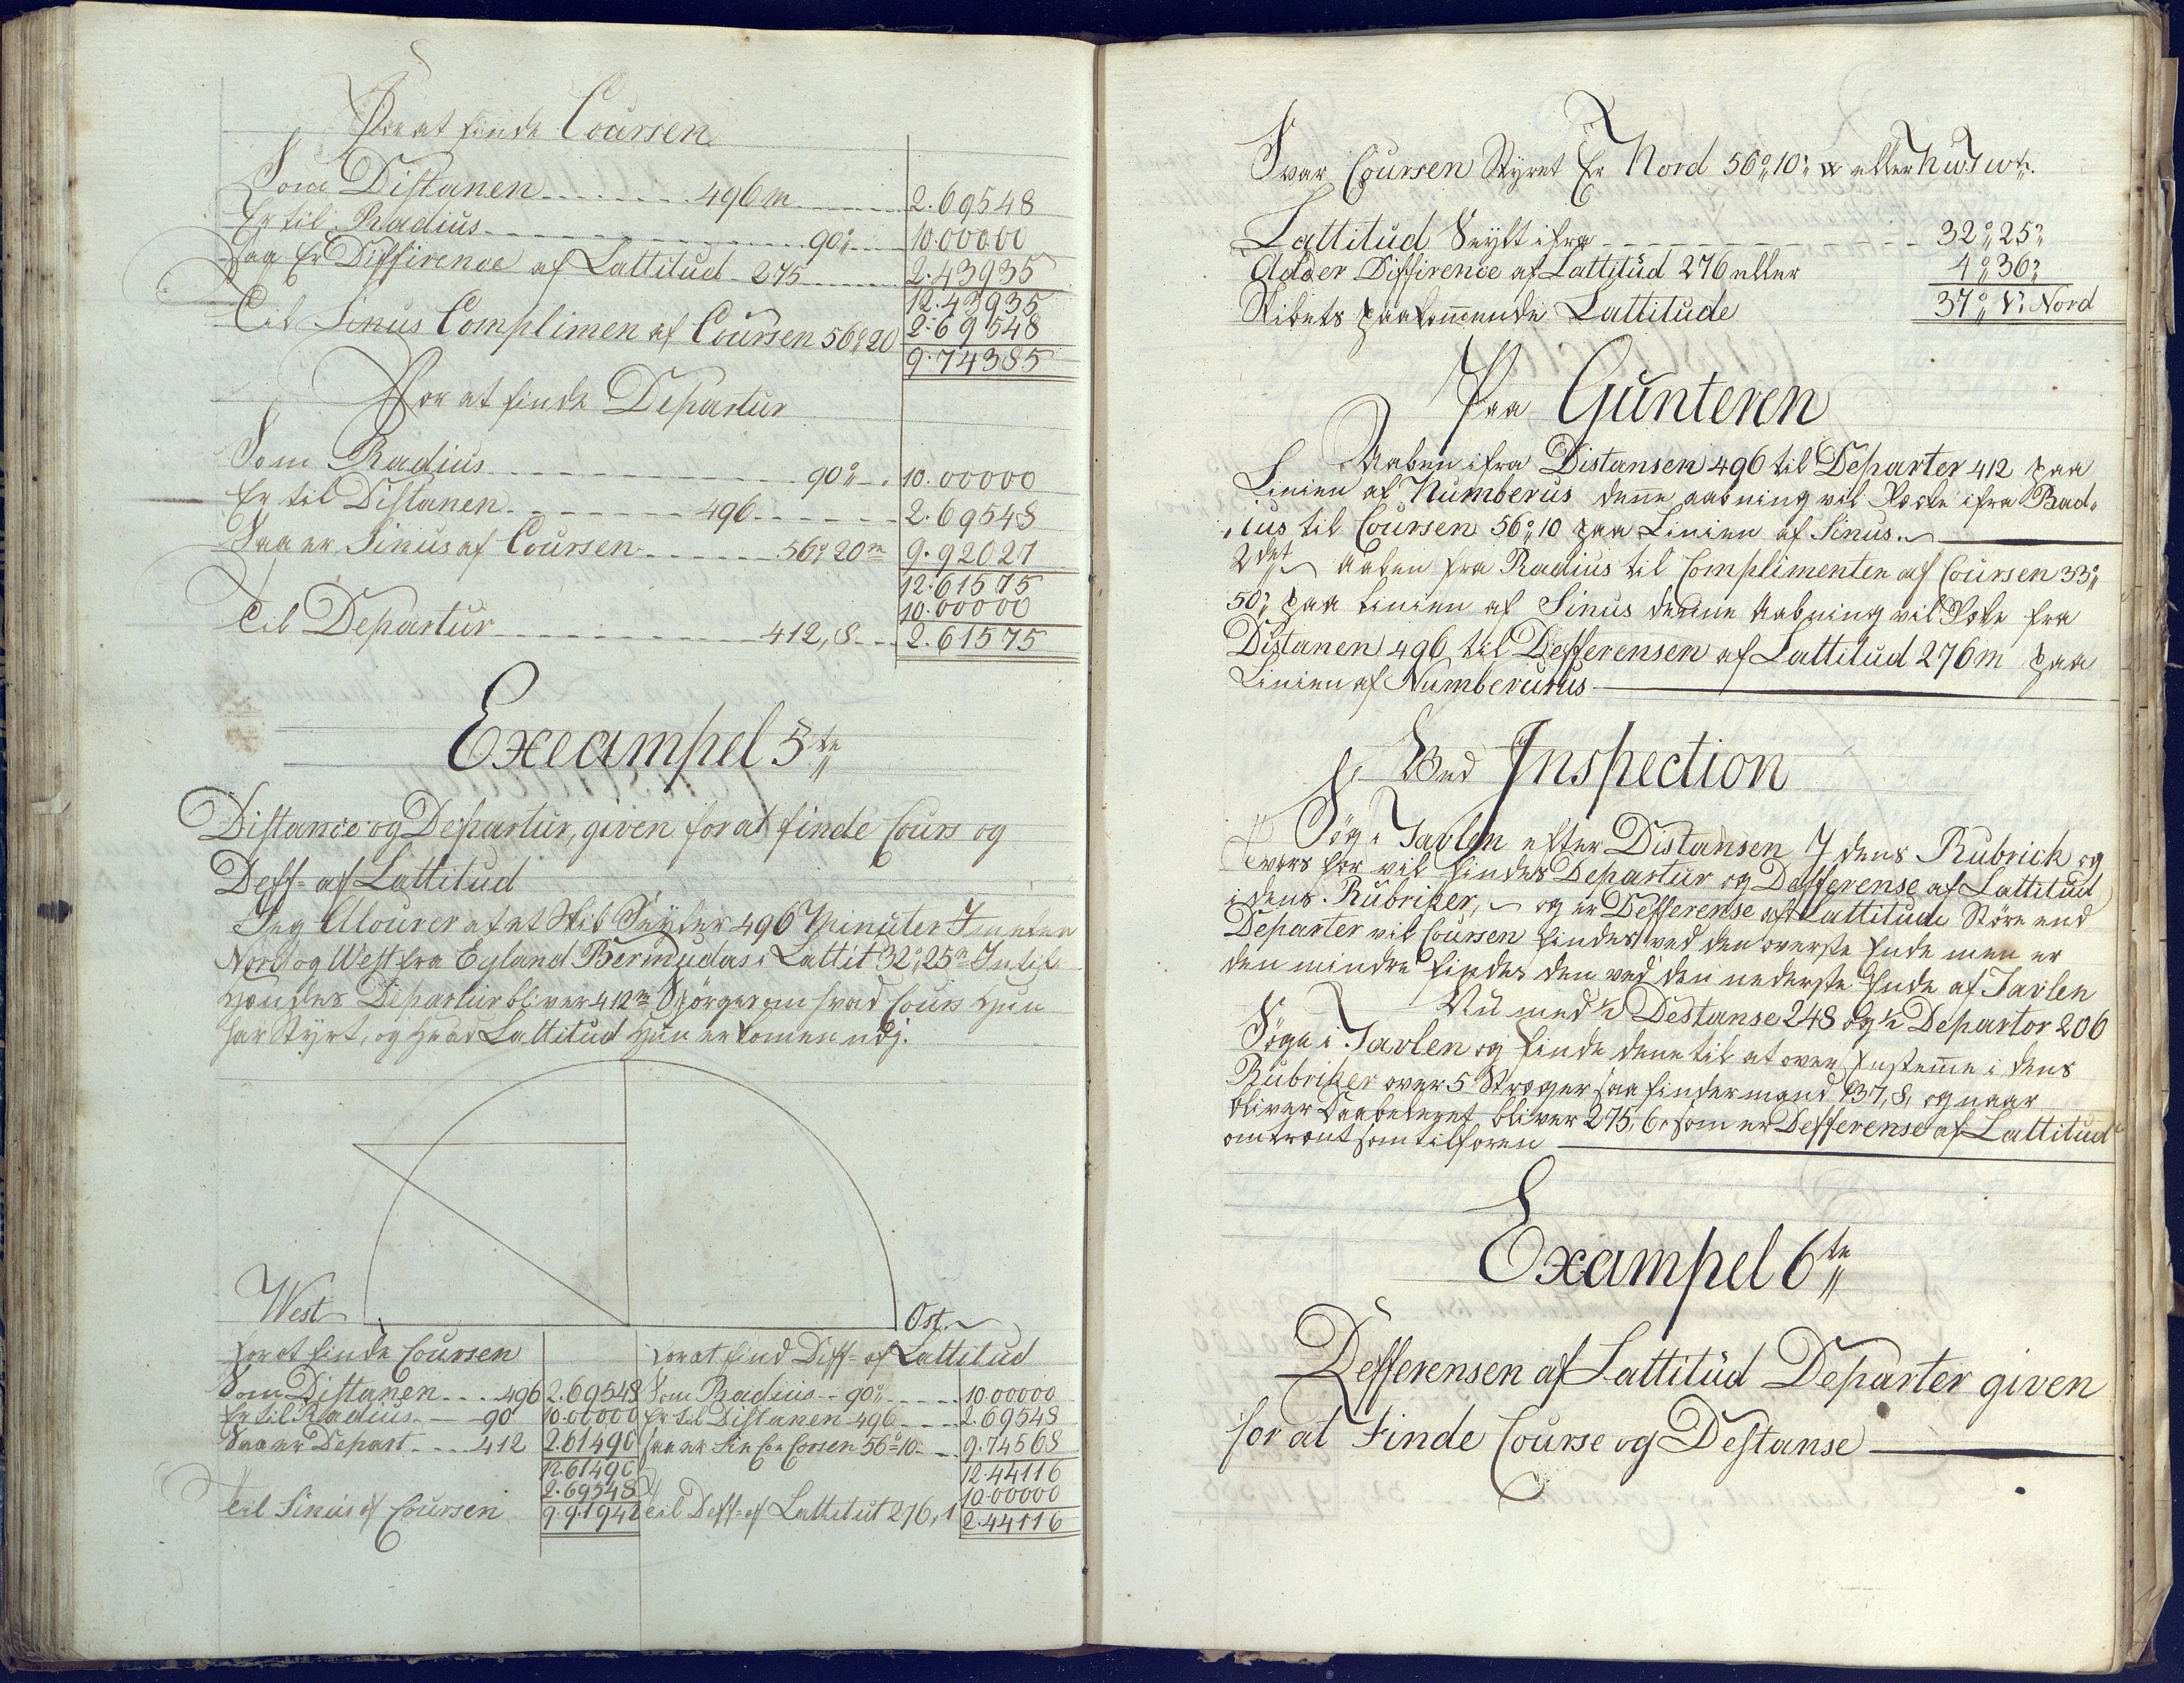 For at finde Coursen
Som Distanen 496 m 2.69548
Er til Radius 90° 10.00000
Saa Er Diffirence af Lattitud 275 2.43935
12.43935
2.69548
Til Sinus Complimen af Coursen 56°20 9.74385
For at finde Departur
Som Radius 90° 10.00000
Er til Distanen 496 2.69548
Saa er Sinus af Coursen 56°20m 9.92027
12.61575
10.00000
Til Departur 412,8 2.61575
Exeampel 5te
Distance og Departur, given for at finde Cours og
Deff= af Lattitud
Jeg at et Skib Seyler 496 Minuter Imelen
Nord og West fra Eyland Bermudas i Lattit 32°25m Intil
Hendes Departur bliver 412m Spörges om hvad Cours Hun
har Styrt, og Hvad Lattitud Hun er komen udj.
West Ost
For at finde Coursen
Som Distanen 496 2.69548
Er til Radius 90 10.00000
Saa er Depart 412 2.61490
12.61490
2.69548
Til Sinus af Coursen 9.91942
For at find Diff= af Lattitud
Som Radius 90° 10.00000
Er til Distanen 496 2.69548
Saa er Sin Co Corsen 56°10 9.74568
12.44116
10.00000
Til Deff= af Lattitut 276,1 2.44116
Svar Coursen Styret Er Nord 56°10' W eller
Lattitud Seylt ifra 32°25'
Adder Diffirence af Lattitud 276 eller 4°36'
Skibets paakomende Lattitude 37°1' Nord
Paa Gunteren
Aaben ifra Distansen 496 til Departer 412 paa
Linien af Numberus dene aabning vil ifra Rad-
ius til Coursen 56°10 paa Linien af Sinus.
2det Aaben fra Radius til Complimenten af Coursen 33°
50' paa Linien af Sinus denne Aabning vil fra
Distanen 496 til Defferensen af Lattitud 276m paa
Linien af Numberurus
Ved Inspection
Søg i Tavlen efter Distansen I dens Rubrick og
tvers for vil findes Departur og Defferense af Lattitud
i dens Rubriker, og er Defferense af Lattitude Störe end
Departer vil Coursen findes ved den overste Ende men er
den mindre findes den ved den nederste Ende af Tavlen
Nu med ½ Destanse 248 og ½ Departor 206
Søge i Tavlen og finde dene til at over Ensteme i dens
Rubriker over 5 Stroger saa finder mand 137,8, og naar
bliver Daabeleret bliver 275,6, som er Defferense af Lattitud
omtrent som tilforen
Exampel 6te
Defferensen af Lattitud Departer given
for at Finde Course og Destanse